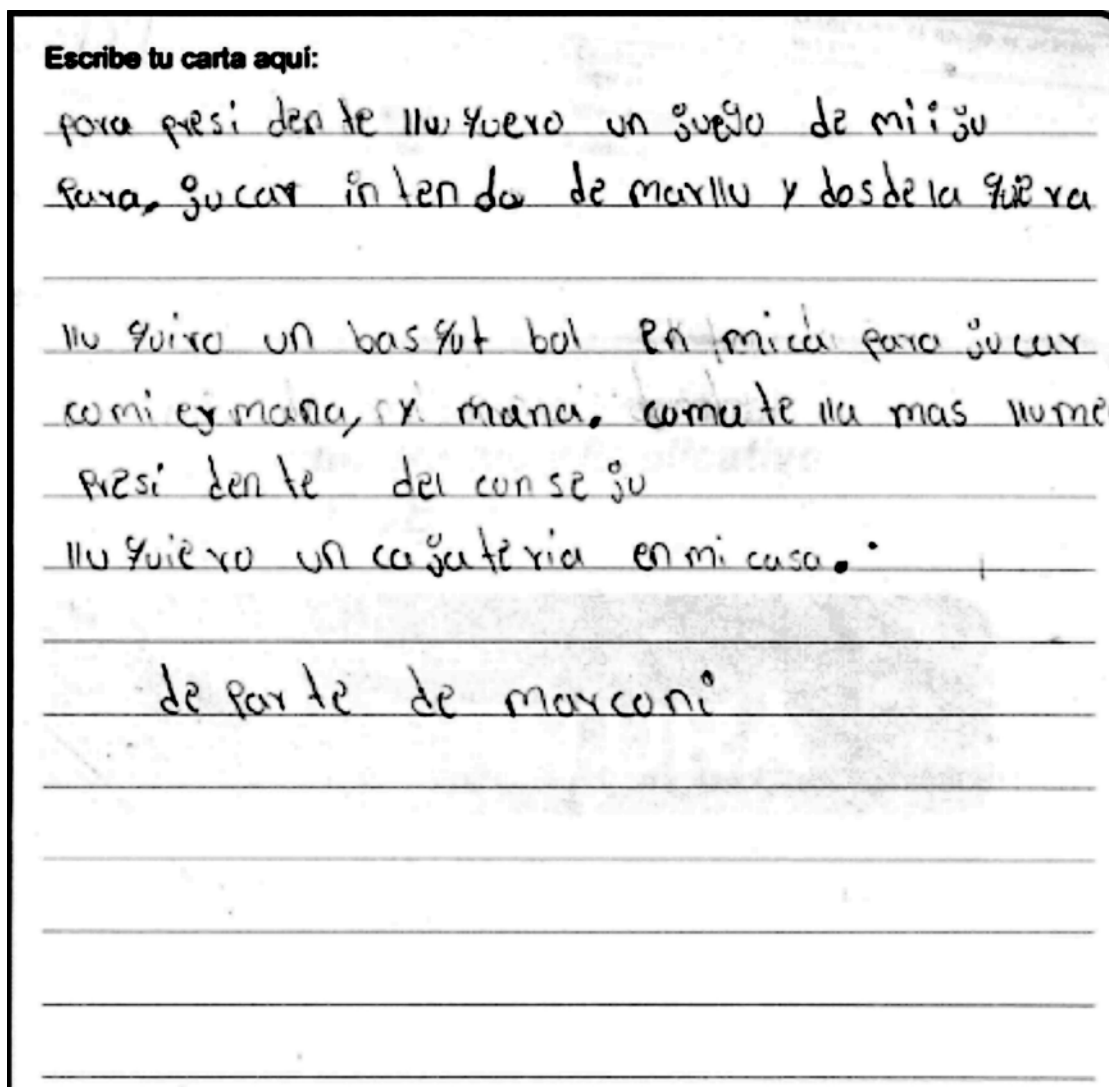 Escribe tu carta aquí:
para presi den te llu quero un juego de mi iju
Para, jucar in ten do de marllu y dosdela quiera
llu quiro un basqut bol en mica para jucar
comi ermana, y mana. coma te lla mas llume
presi den te del conse ju
llu quiero un cajateria en mi casa.
de Par te de marconi